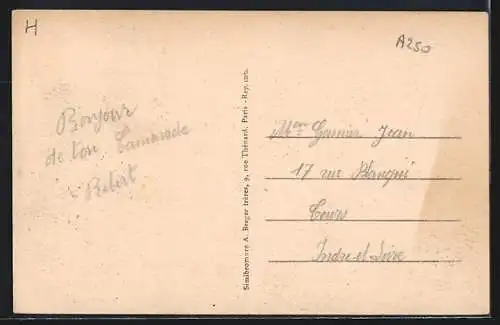 H
A250
Bonjour
de ton Camarade
Robert
Simibromure A. Breger frères, 9, rue Thénard, Paris - Rep. int.
Mon Garnier Jean
17 rue Blanqui
Tours
Indre-et-Loire